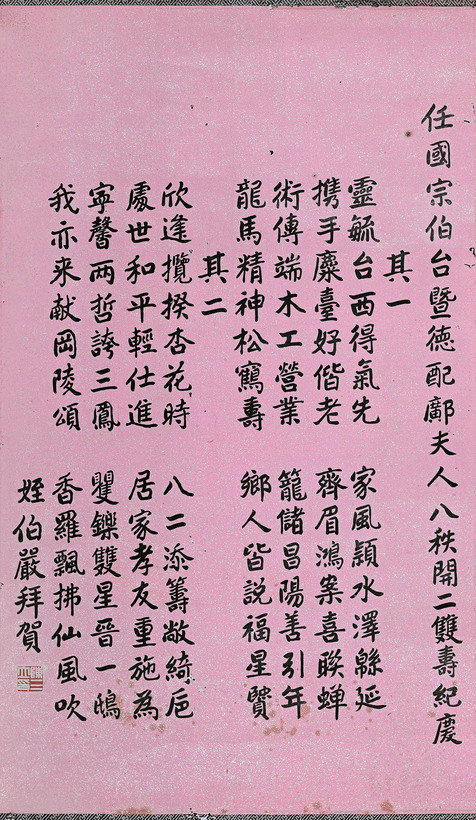 任國宗伯台暨德配鄺夫人八秩開二雙壽紀慶
其一
靈毓台西得氣先 家風頴水澤緜延
携手麋臺好偕老 齊眉鴻案喜聯蟬
術傳端木工營業 籠儲昌陽善引年
龍馬精神松鶴壽 鄉人皆說福星賢
其二
欣逢攬揆杏花時 八二添籌敞綺巵
處世和平輕仕進 居家孝友重施為
寧馨兩哲誇三鳳 矍鑠雙星晉一鴟
我亦来献岡陵頌 香羅飄拂仙風吹
姪伯嚴拜賀